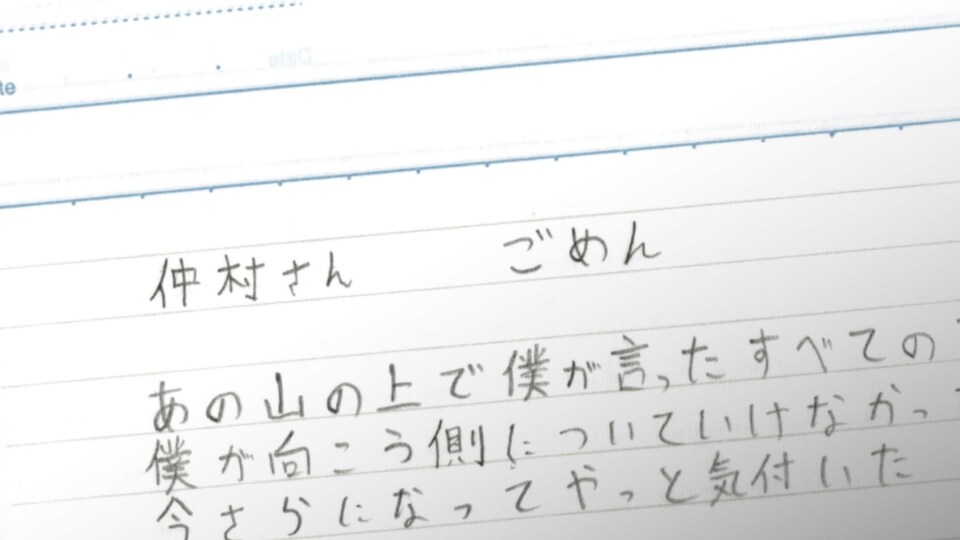 Date
仲村さん　　ごめん
あの山の上で僕が言ったすべての
僕が向こう側についていけなかっ
今さらになってやっと気付いた